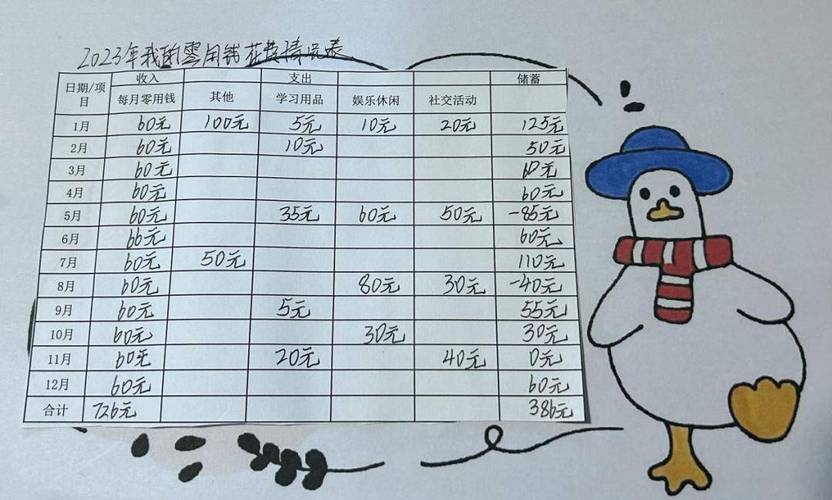 2023年我的零用钱花费情况表
日期/项目 收入 支出 储蓄
每月零用钱 其他 学习用品 娱乐休闲 社交活动
1月 60元 100元 5元 10元 20元 125元
2月 60元 10元 50元
3月 60元 60元
4月 60元 60元
5月 60元 35元 60元 50元 -85元
6月 66元 60元
7月 60元 50元 110元
8月 60元 80元 30元 -40元
9月 60元 5元 55元
10月 60元 30元 30元
11月 60元 20元 40元 0元
12月 60元 60元
合计 726元 386元